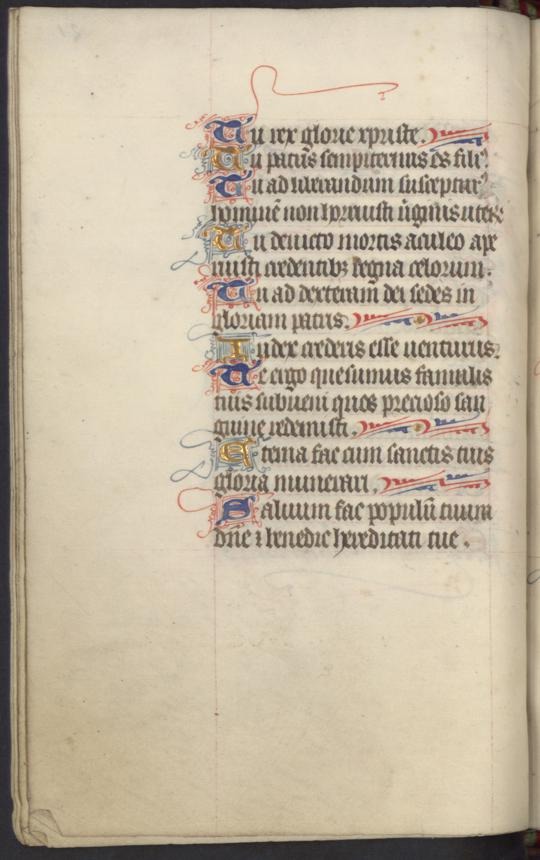 Tu rex glorie xpriste.
Tu patris sempiternus es fili⁹.
Tu ad liberandum suscepturꝰ
hominē non horruisti ūginis uterū
Tu deuicto mortis aculeo ape
ruisti credentibꝫ regna celorum.
Tu ad dexteram dei sedes in
gloriam patris.
Iudex crederis esse uenturus.
Te ergo quesumus famulis
tuis subueni quos precioso san
guine redemisti.
Eterna fac cum sanctis tuis
gloria munerari.
Saluum fac populū tuum
dn̄e ⁊ benedic hereditati tue.